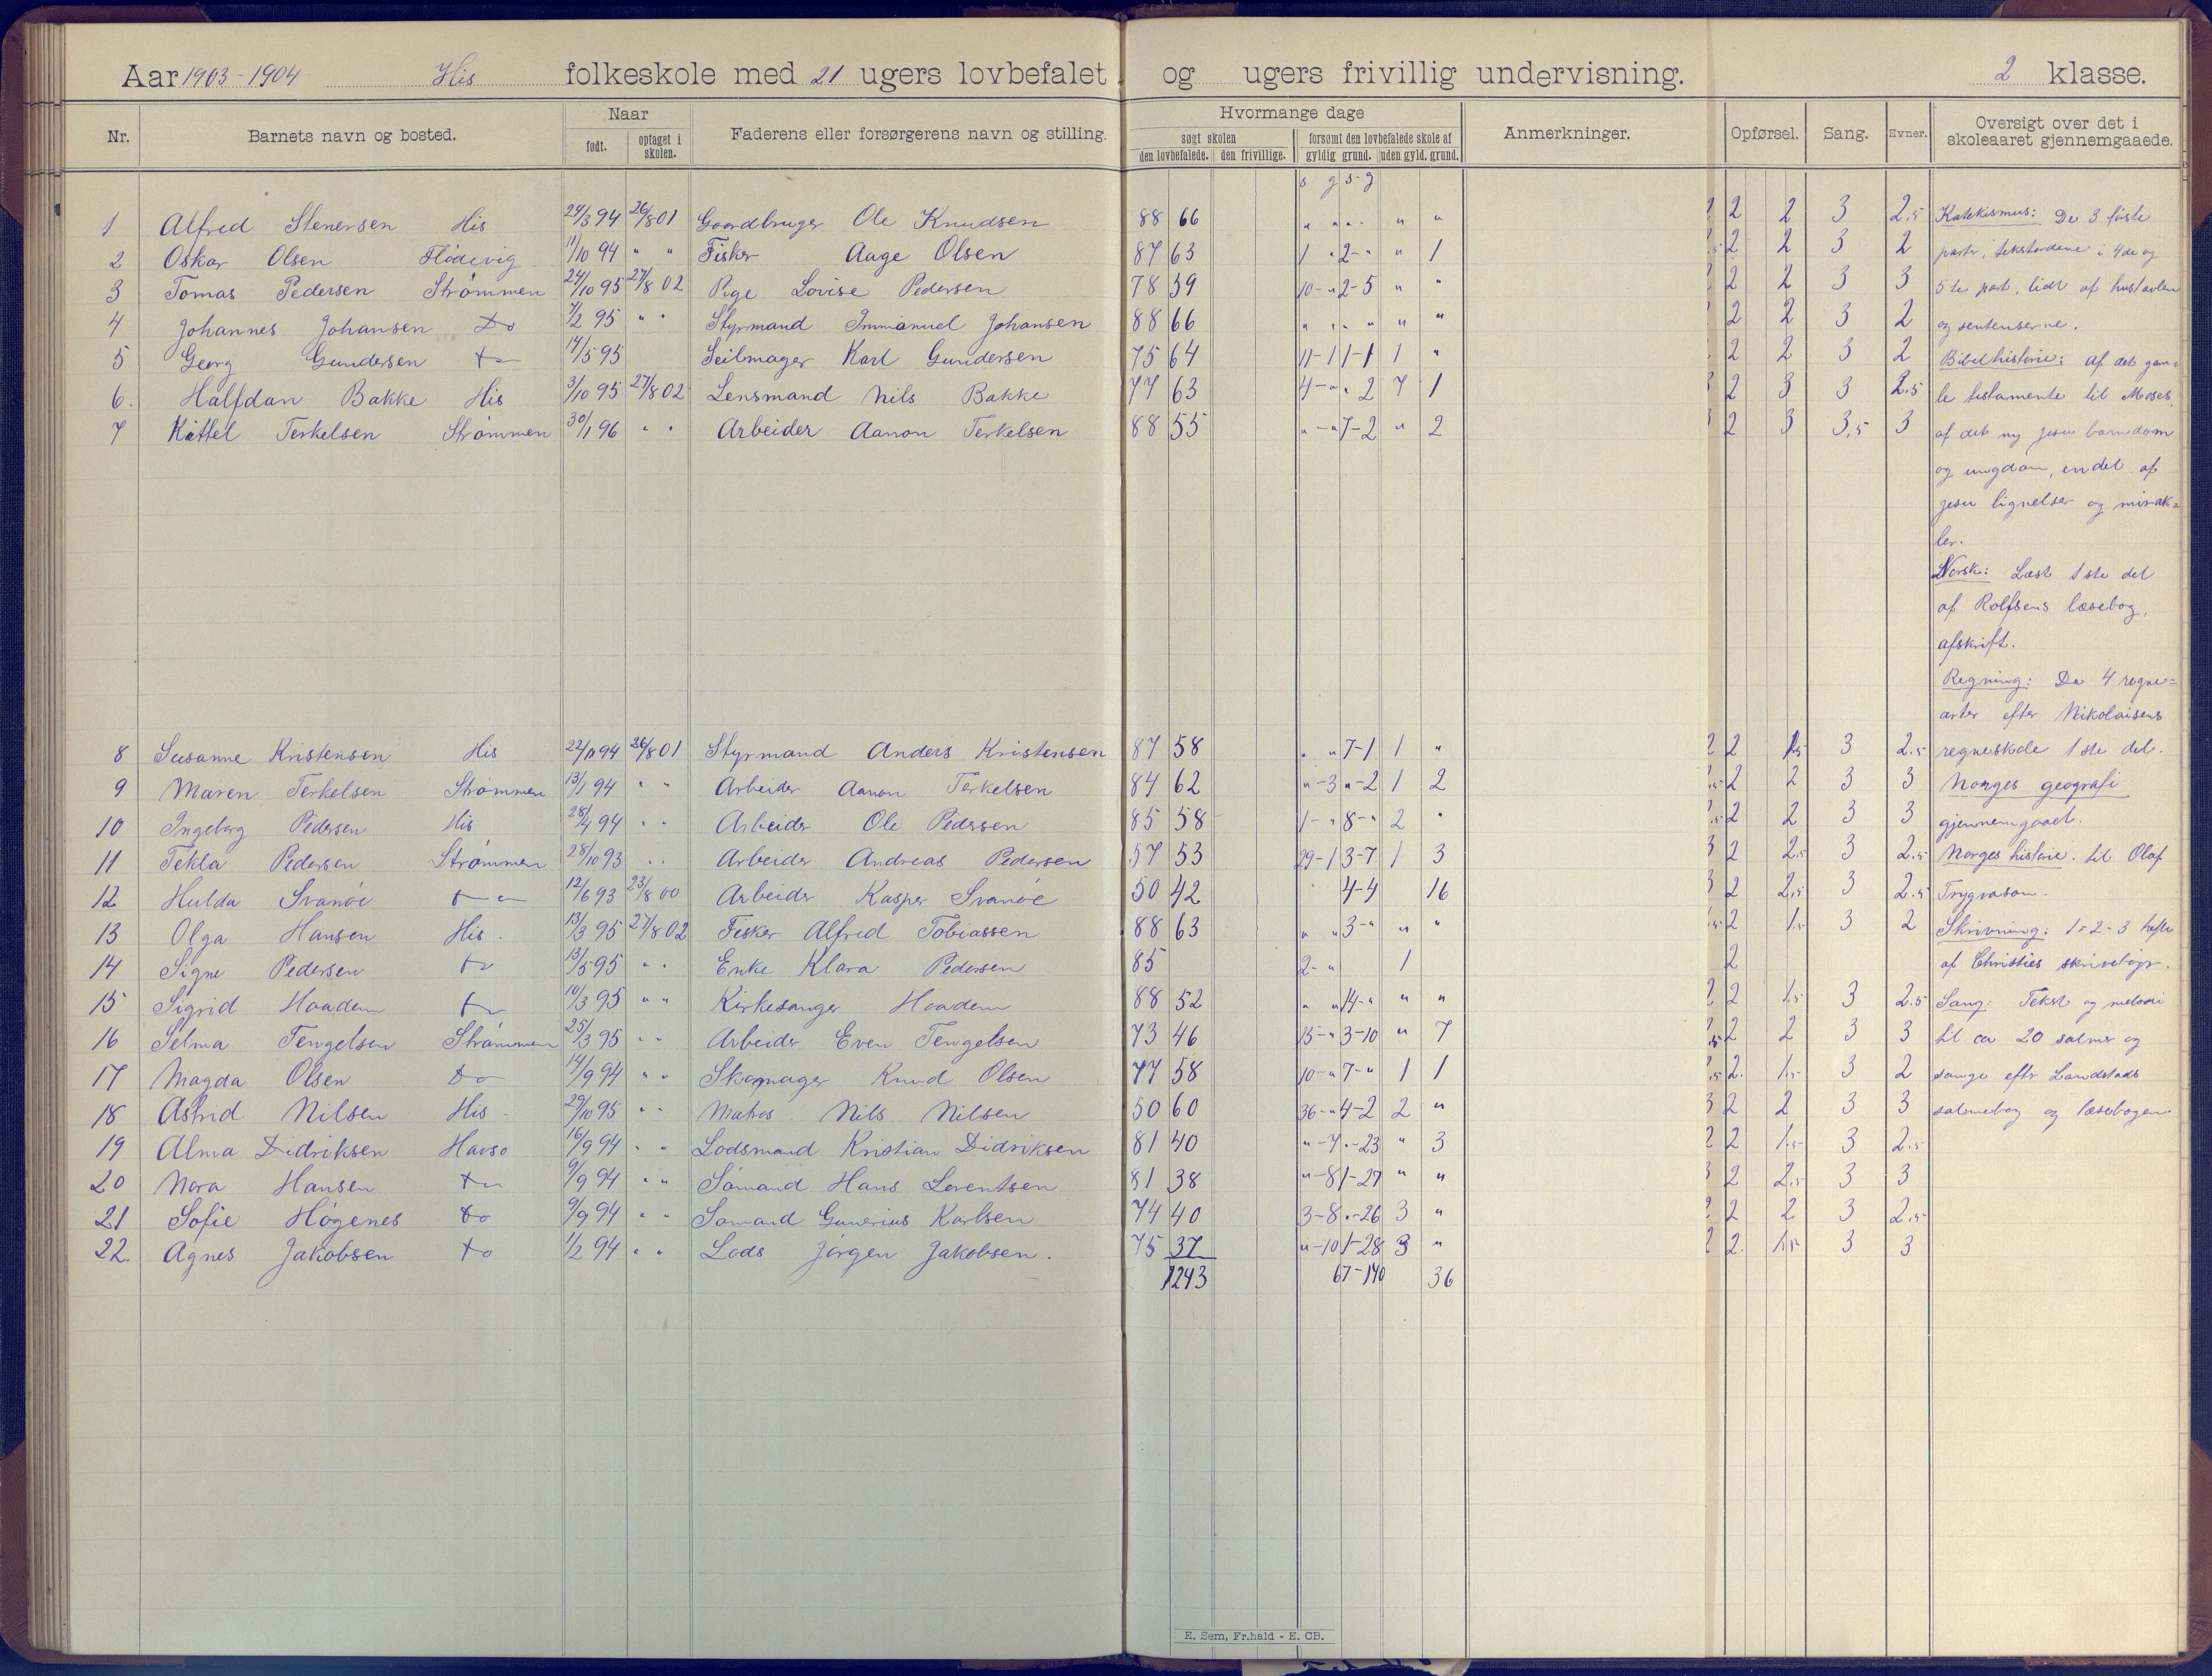 Aar 1903-1904 His folkeskole med 21 ugers lovbefalet og ugers frivillig undervisning. 2 klasse.
Nr. Barnets navn og bosted. Naar født. optaget i skolen. Faderens eller forsørgerens navn og stilling. Hvormange dage søgt skolen den lovbefalede. den frivillige. forsømt den lovbefalede skole af gyldig grund. uden gyld. grund. Anmerkninger. Opførsel. Sang. Evner. Oversigt over det i skoleaaret gjennemgaaede.
s g s-g
1 Alfred Stenersen His 24/3 94 26/8 01 Gaardbruger Ole Knudsen 88 66 " " " " " 2 2 3 2.5 Katekismus: De 3 første
2 Oskar Olsen Flødevig 11/10 94 " " Fisker Aage Olsen 87 63 1 " 2 - " " 1 2 2 3 2 parter, tekstordene i 4de og
3 Tomas Pedersen Strømmen 24/10 95 27/8 02 Pige Lovise Pedersen 78 59 10 - " 2 - 5 " " 2 2 3 3 5te part, lidt af hustavlen
4 Johannes Johansen Do 7/2 95 " " Styrmand Immanuel Johansen 88 66 " " " " " " 2 2 3 2 og sentenserne.
5 Georg Gundersen Do 14/5 95 Seilmager Karl Gundersen 75 64 11 - 1 1 - 1 1 " 2 2 3 2 Bibelhistorie: Af det gam=
6. Halfdan Bakke His 3/10 95 27/8 02 Lensmand Nils Bakke 77 63 4 - " " 2 7 1 2 3 3 2.5 le testamente til Moses,
7 Kittel Terkelsen Strømmen 30/1 96 " " Arbeider Aanon Terkelsen 88 55 " - " 7 - 2 " 2 2 3 3,5 3 af det ny Jesu barndom
og ungdom, en del af
Jesu lignelser og mirak=
ler.
Norsk: Læst 1ste del
af Rolfsens læsebog,
afskrift.
Regning: De 4 regne=
arter efter Nikolaisens
8 Susanne Kristensen His 22/11 94 26/8 01 Styrmand Anders Kristensen 87 58 " " 7 - 1 1 " 2 1.5 3 2.5 regneskole 1ste del.
9 Maren Terkelsen Strømmen 13/1 94 " " Arbeider Aanon Terkelsen 84 62 " - 3 " - 2 1 2 2 2 3 3 Norges geografi
10 Ingeborg Pedersen His 28/4 94 " " Arbeider Ole Pedersen 85 58 1 - " 8 - " 2 " 2 2 3 3 gjennemgaaet.
11 Tekla Pedersen Strømmen 28/10 93 " " Arbeider Andreas Pedersen 57 53 29 - 1 3 - 7 1 3 2 2.5 3 2.5 Norges historie. til Olaf
12 Hulda Svanøe 12/6 93 23/8 00 Arbeider Kasper Svanøe 50 42 4 - 4 16 2 2.5 3 2.5 Trygvason.
13 Olga Hansen His. 13/3 95 27/8 02 Fisker Alfred Tobiassen 88 63 " " 3 - " " " 2 1.5 3 2 Skrivning: 1-2-3 hefte
14 Signe Pedersen Do 13/5 95 " " Enke Klara Pedersen 85 2 - " 1 2 af Christies skrivebøger.
15 Sigrid Haadem Do 10/3 95 " " Kirkesanger Haadem 88 52 " " 14 - " " " 2 1.5 3 2.5 Sang: Tekst og melodi
16 Selma Tengelsen Strømmen 25/3 95 " " Arbeider Even Tengelsen 73 46 15 - " 3 - 10 " 7 2 2 3 3 til ca 20 salmer og
17 Magda Olsen Do 14/9 94 " " Skomager Knud Olsen 77 58 10 - " 7 - " 1 1 2. 1.5 3 2 sange efter Landstads
18 Astrid Nilsen His - 29/10 95 " " Matros Nils Nilsen 50 60 36 - " 4 - 2 2 " 2 2 3 3 salmebog og læsebogen.
19 Alma Didriksen Havsø 16/9 94 " " Lodsmand Kristian Didriksen 81 40 " - 7 " - 23 " 3 2 1.5 3 2.5
20 Nora Hansen Do 9/9 94 " " Sømand Hans Lorentsen 81 38 " - 8 1 - 27 " " 2 2.5 3 3
21 Sofie Høgenes Do 9/9 94 " " Sømand Gunerius Karlsen 74 40 3 - 8 " - 26 3 " 2 2 3 2.5
22. Agnes Jakobsen Do 1/2 94 " " Lods Jørgen Jakobsen. 75 37 " - 10 1 - 28 3 " 2. 1.5 3 3
1243 67 - 140 36
E. Sem, Fr.hald - E. CB.